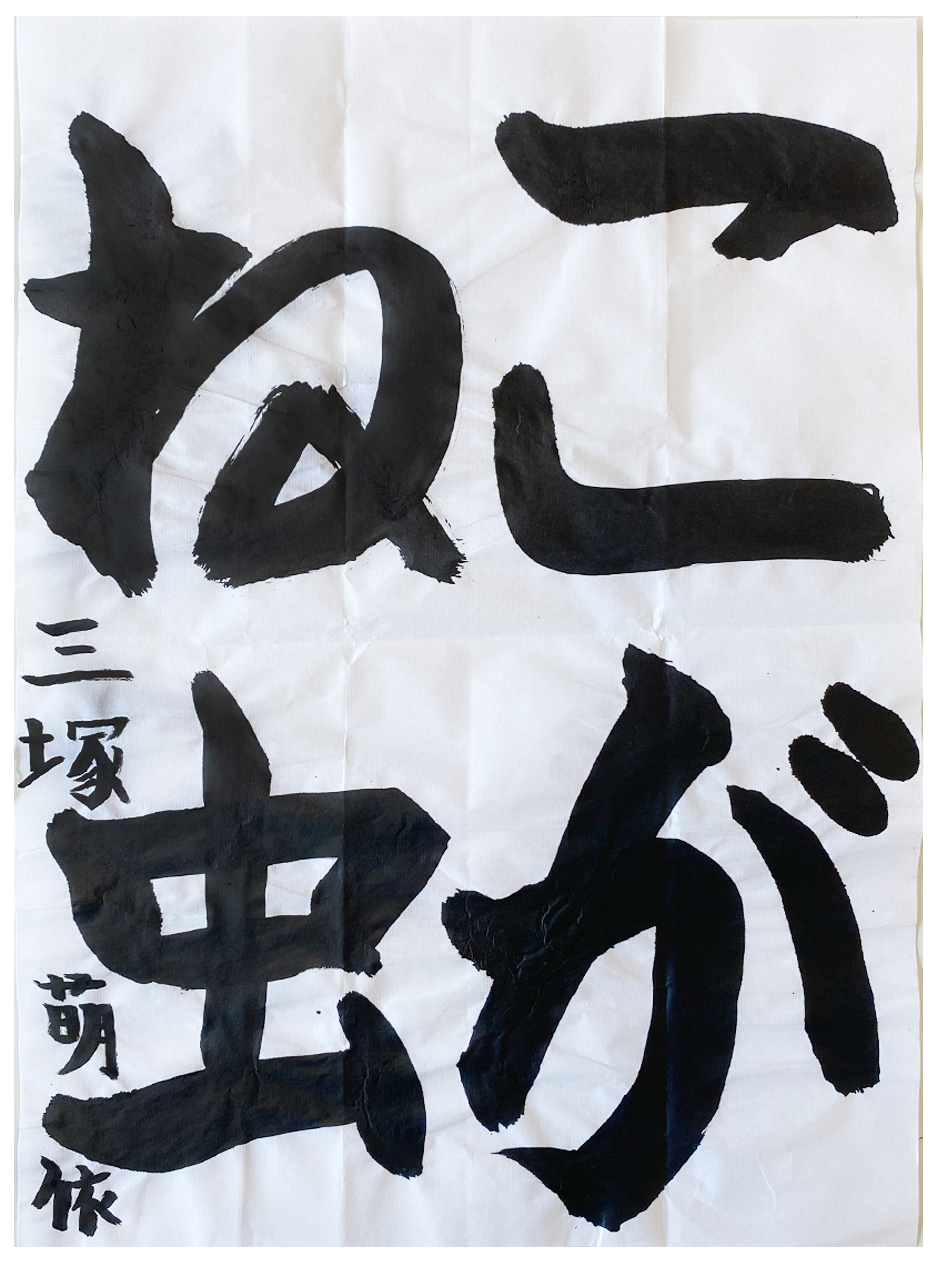 こが
ね虫
三塚萌依